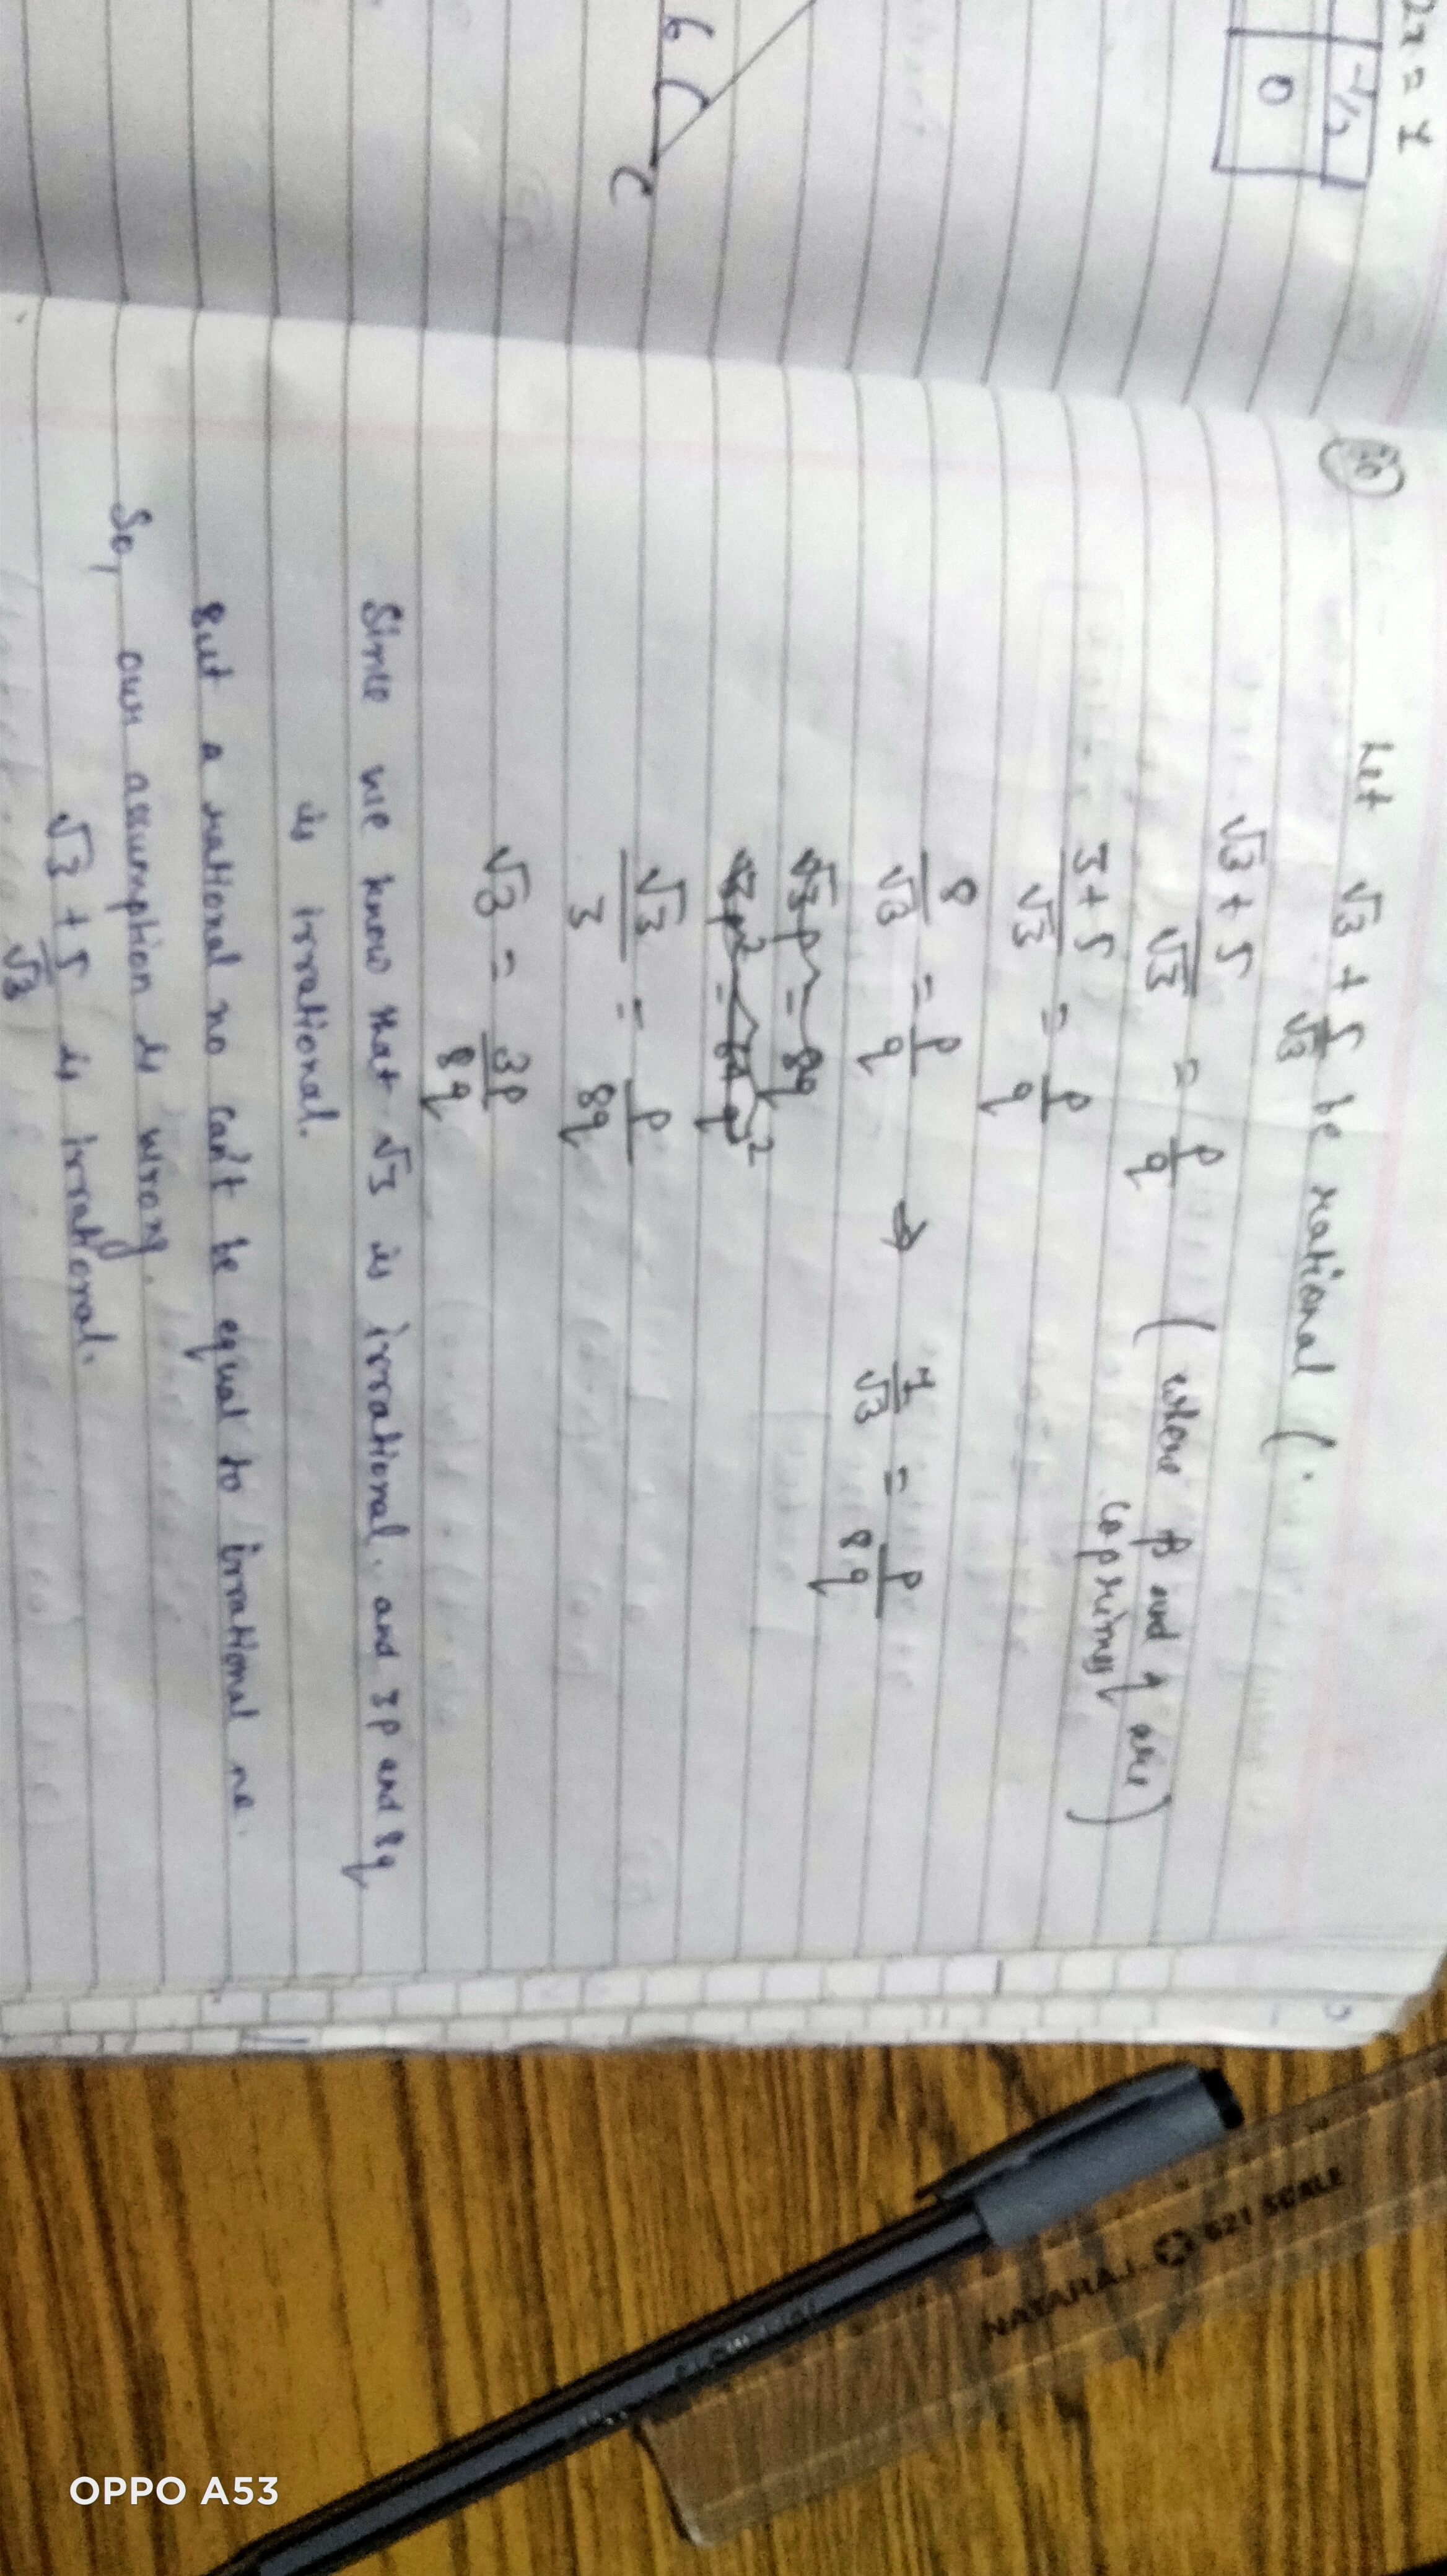 2x = 1
-1/2
0
6
C
30
Let √3 + 5/√3 be rational (.
√3 + 5/√3 = p/q (where p and q are
coprimes)
3+5/√3 = p/q
8/√3 = p/q ⇒ 1/√3 = p/8q
√3 p = 8q
√3/3 = p/8q
√3 = 3p/8q
Since we know that √3 is irrational. and 3p and 8q
is irrational.
But a rational no can't be equal to irrational no.
So, our assumption is wrong.
√3 + 5/√3 is irrational.
NATARAJ 621 SCALE
OPPO A53